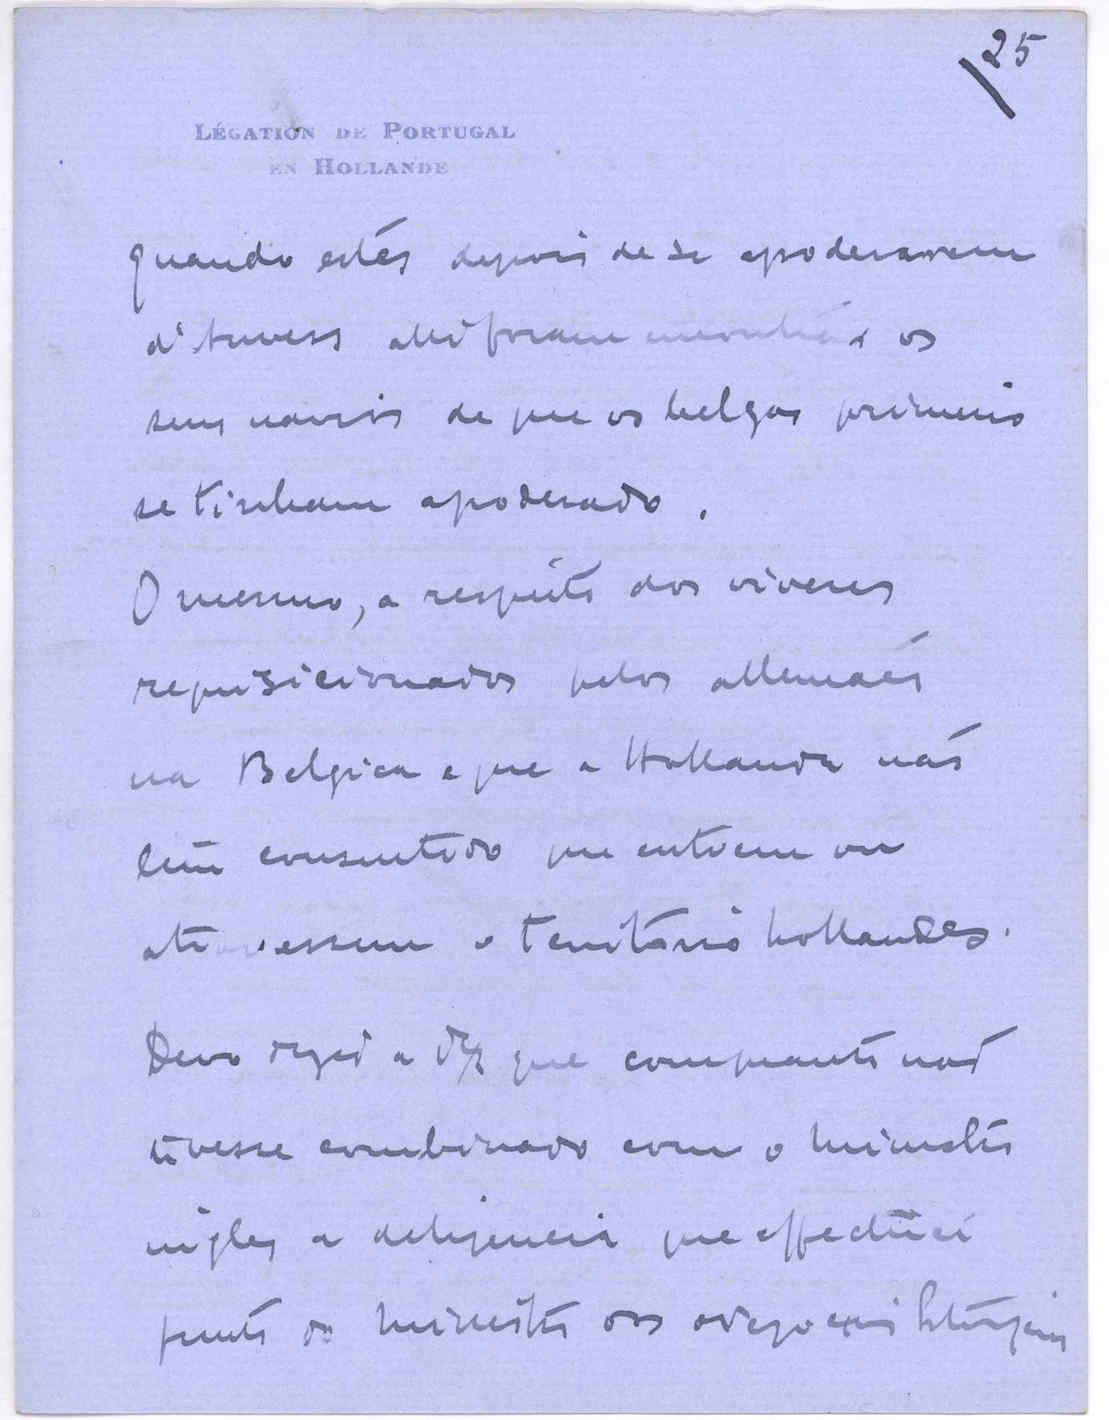 25
LÉGATION DE PORTUGAL
EN HOLLANDE
quando estes depois de se apoderarem
d'Anvers alli foram os
seus navios de que os belgas primeiro
se tinham apoderado.
O mesmo, a respeito dos viveres
requisicionados pelos allemães
na Belgica e que a Hollanda não
tem consentido que entrem ou
atravessem o territorio hollandes.
Devo dizer a VEx que comquanto não
tivesse combinado com o ministro
ingles a deligencia que effectuei
junto do ministro dos negocios Estrangeiros